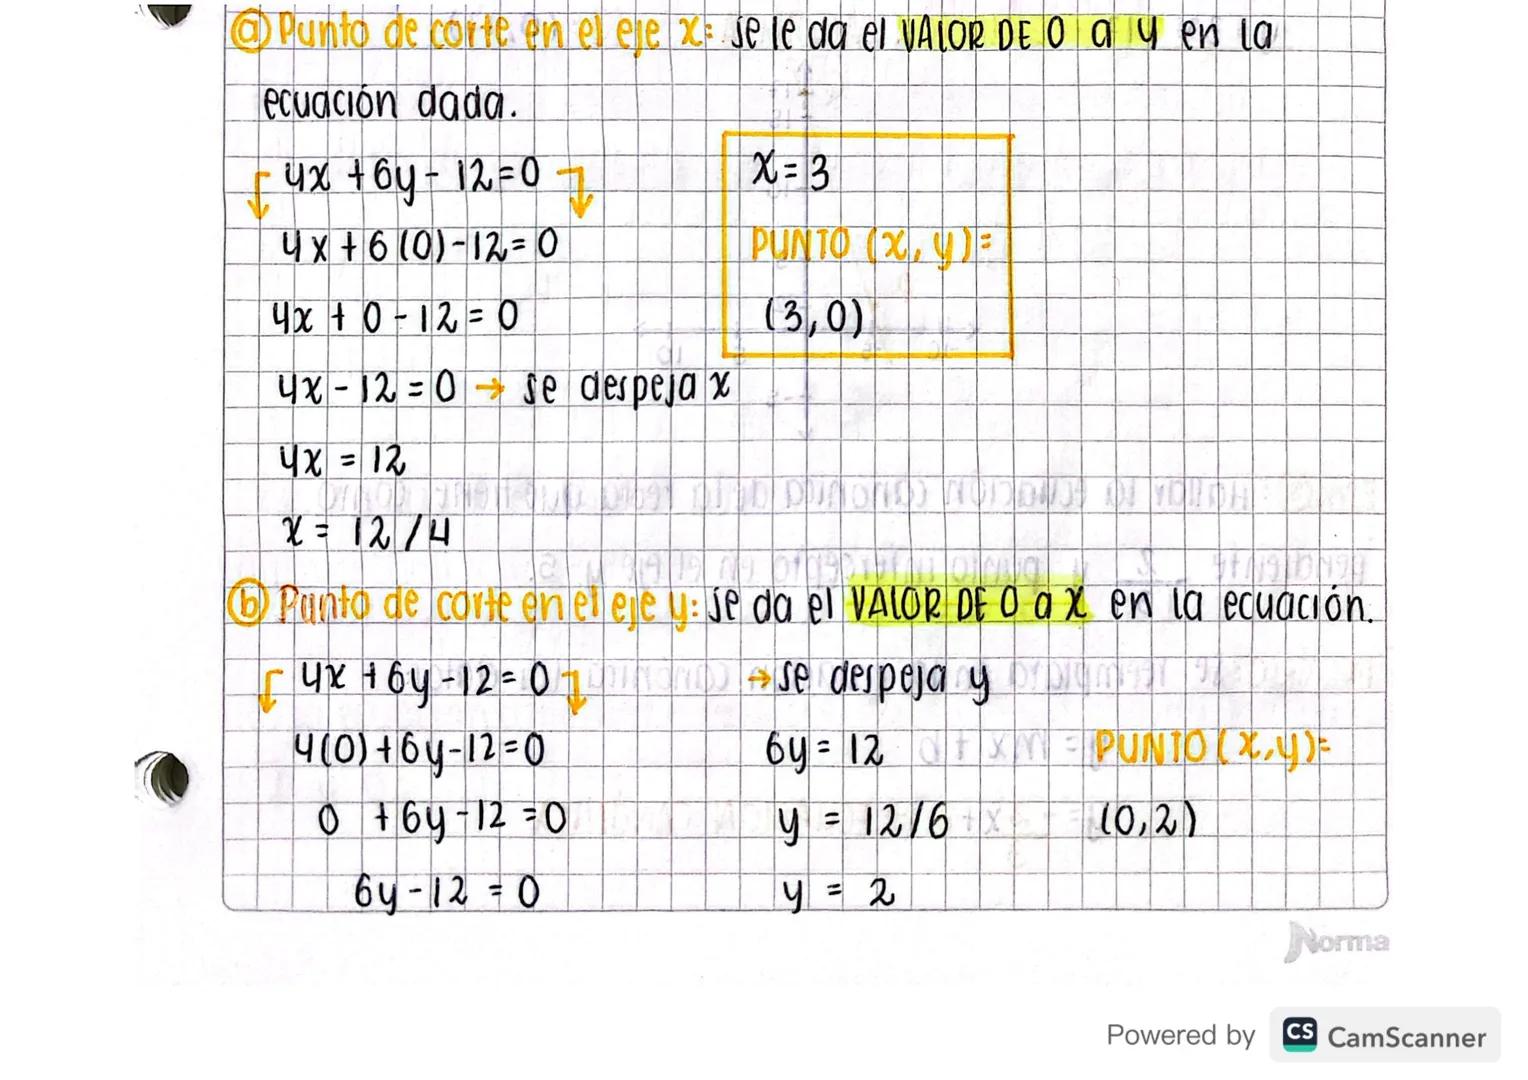 ⓐ Punto de corte en el eje x: se le da el VALOR DE 0 a y en la
ecuación dada.
4x + 6y - 12 = 0
4x + 6(0) - 12 = 0
4x + 0 - 12 = 0
4x - 12 = 0 → se despeja x
4x = 12
x = 12/4
x = 3
PUNTO (x, y) =
(3,0)
ⓑ Punto de corte en el eje y: se da el VALOR DE 0 a x en la ecuación.
4x + 6y - 12 = 0
4(0) + 6y - 12 = 0
0 + 6y - 12 = 0
6y - 12 = 0
→ se despeja y
6y = 12
y = 12/6
y = 2
PUNTO (x, y) =
(0,2)
Norma
Powered by CS CamScanner